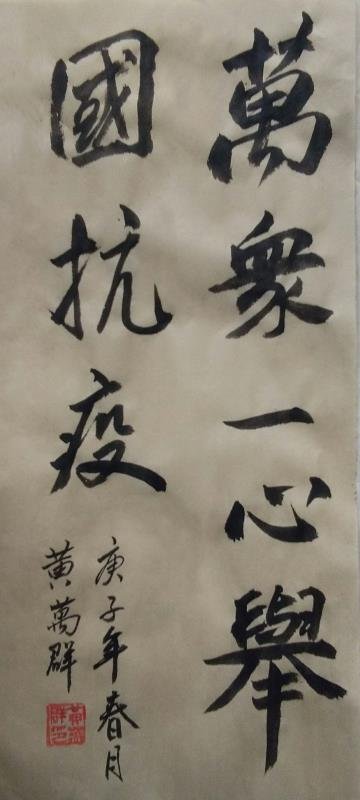 萬衆一心舉
國抗疫
庚子年春月
黄萬群